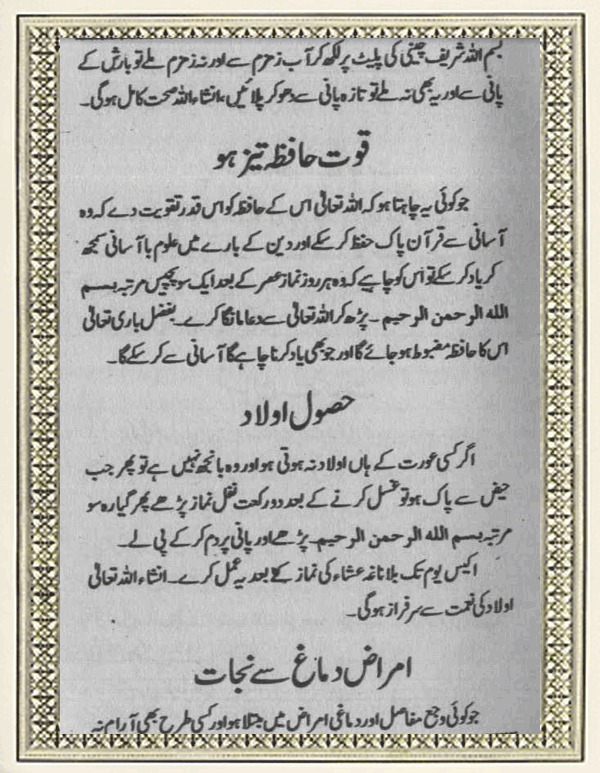 بسم اللہ شریف چینی کی پلیٹ پر لکھ کر آب زمزم سے اور نہ زمزم ملے تو بارش کے
پانی سے اور یہ بھی نہ ملے تو تازہ پانی سے دھو کر پلائیں، انشاء اللہ صحت کامل ہوگی۔
قوت حافظہ تیز ہو
جو کوئی یہ چاہتا ہو کہ اللہ تعالیٰ اس کے حافظہ کو اس قدر تقویت دے کہ وہ
آسانی سے قرآن پاک حفظ کر سکے اور دین کے بارے میں علوم با آسانی سمجھ
کر یاد کر سکے تو اس کو چاہیے کہ وہ ہر روز نماز عصر کے بعد ایک سو پچیس مرتبہ بسم
الله الرحمن الرحیم۔ پڑھ کر اللہ تعالیٰ سے دعا مانگا کرے۔ بفضل باری تعالیٰ
اس کا حافظہ مضبوط ہو جائے گا اور جو بھی یاد کرنا چاہے گا آسانی سے کر سکے گا۔
حصول اولاد
اگر کسی عورت کے ہاں اولاد نہ ہوتی ہو اور وہ بانجھ نہیں ہے تو پھر جب
حیض سے پاک ہو تو غسل کرنے کے بعد دو رکعت نفل نماز پڑھے پھر گیارہ سو
مرتبہ بسم الله الرحمن الرحیم۔ پڑھے اور پانی پر دم کر کے پی لے۔
اکیس یوم تک بلا ناغہ عشاء کی نماز کے بعد یہ عمل کرے۔ انشاء اللہ تعالیٰ
اولاد کی نعمت سے سرفراز ہوگی۔
امراض دماغ سے نجات
جو کوئی وجع مفاصل اور دماغی امراض میں مبتلا ہو اور کسی طرح بھی آرام نہ